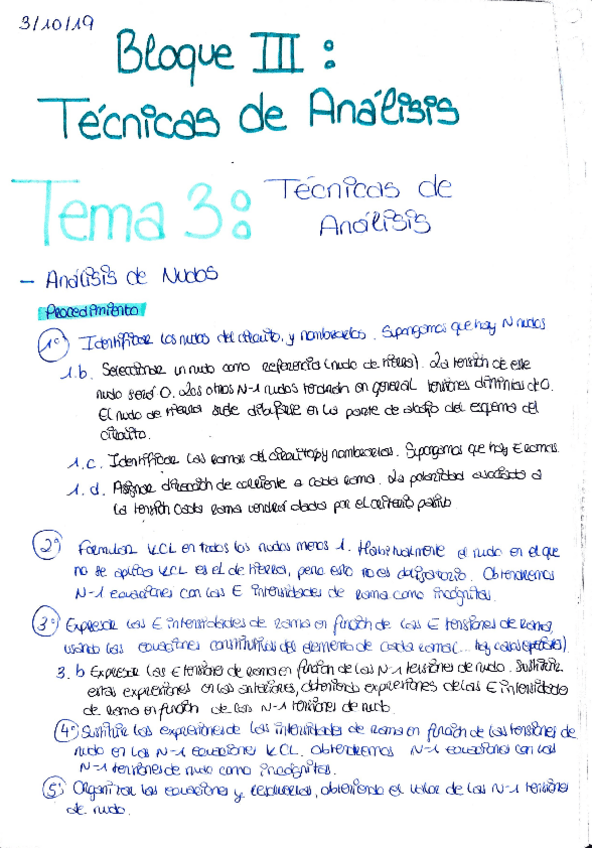 3/10/19
Bloque III :
Técnicas de Análisis
Tema 3: Técnicas de
Análisis
- Análisis de Nudos
Procedimiento
1º Identificar los nudos del circuito, y nombrarlos. Supongamos que hay N nudos
1.b. Seleccionar un nudo como referencia (nudo de tierra). La tensión de este
nudo será 0. Los otros N-1 nudos tendrán en general tensiones distintas de 0.
El nudo de tierra suele dibujarse en la parte de abajo del esquema del
circuito.
1.c. Identificar las ramas del circuito y nombrarlas. Supongamos que hay E ramas.
1.d. Asignar dirección de corriente a cada rama. La polaridad asociada a
la tensión cada rama vendrá dada por el criterio pasivo.
2º Formular KCL en todos los nudos menos 1. Habitualmente el nudo en el que
no se aplica KCL es el de tierra, pero esto no es obligatorio. Obtendremos
N-1 ecuaciones con las E intensidades de rama como incógnitas.
3º Expresar las E intensidades de rama en función de las E tensiones de rama,
usando las ecuaciones constitutivas del elemento de cada rama (... hay casos especiales)
3.b Expresar las E tensiones de rama en función de las N-1 tensiones de nudo. Sustituir
estas expresiones en las anteriores, obteniendo expresiones de las E intensidades
de rama en función de las N-1 tensiones de nudo.
4º Sustituir las expresiones de las intensidades de rama en función de las tensiones de
nudo en las N-1 ecuaciones KCL. Obtendremos N-1 ecuaciones con las
N-1 tensiones de nudo como incógnitas.
5º Organizar las ecuaciones y resolverlas, obteniendo el valor de las N-1 tensiones
de nudo.